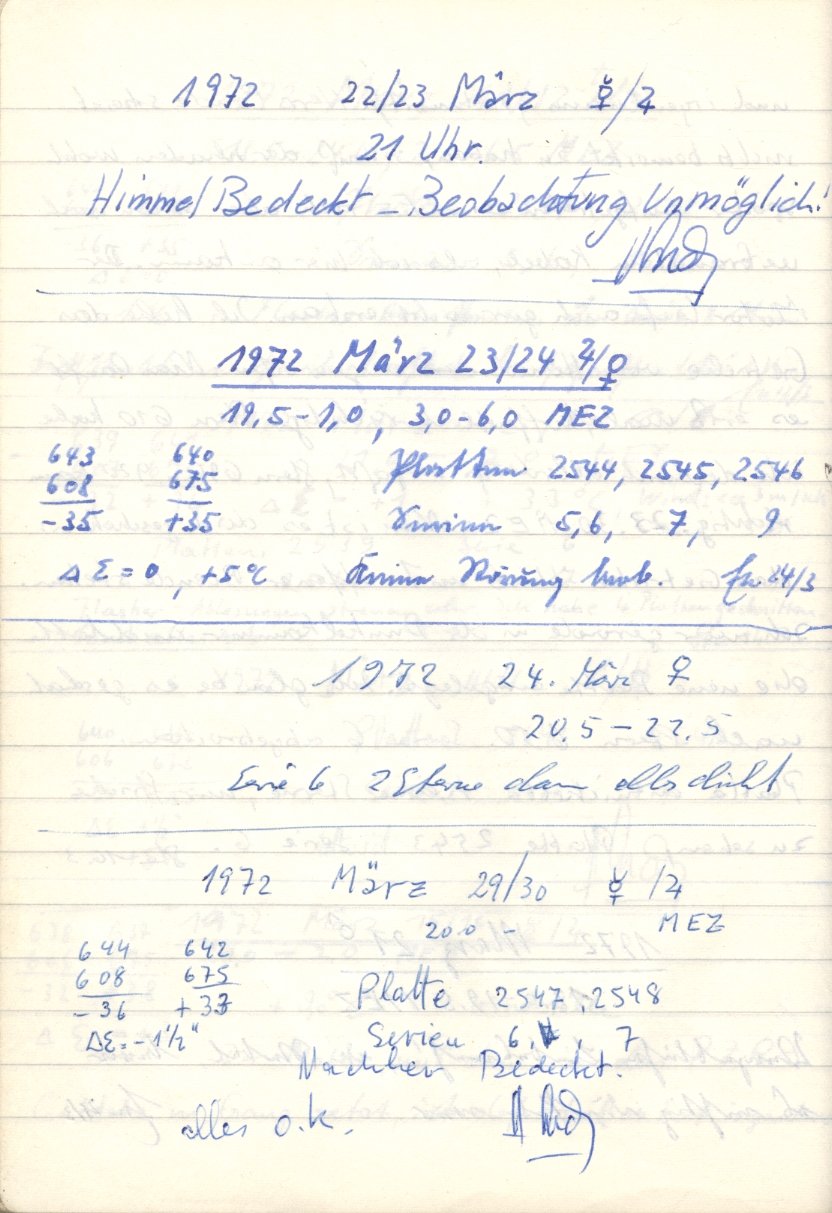 1972 22/23 März ☿/♃
21 Uhr.
Himmel Bedeckt – Beobachtung Unmöglich!
1972 März 23/24 ♃/♀
19,5–1,0, 3,0–6,0 MEZ
643 640 Platten 2544, 2545, 2546
608 675 Serien 5,6, 7, 9
-35 +35
Δ Σ = 0, +5°C Keine Störung beob. 24/3
1972 24. März ♀
20.5 – 22.5
Serie 6 2 Sterne dann alles dicht
1972 März 29/30 ☿/♃
20.0 – MEZ
644 642
608 675 Platte 2547, 2548
-36 +33
ΔΣ = -1½" Serien 6, 7
Nachher Bedeckt.
alles o.k.